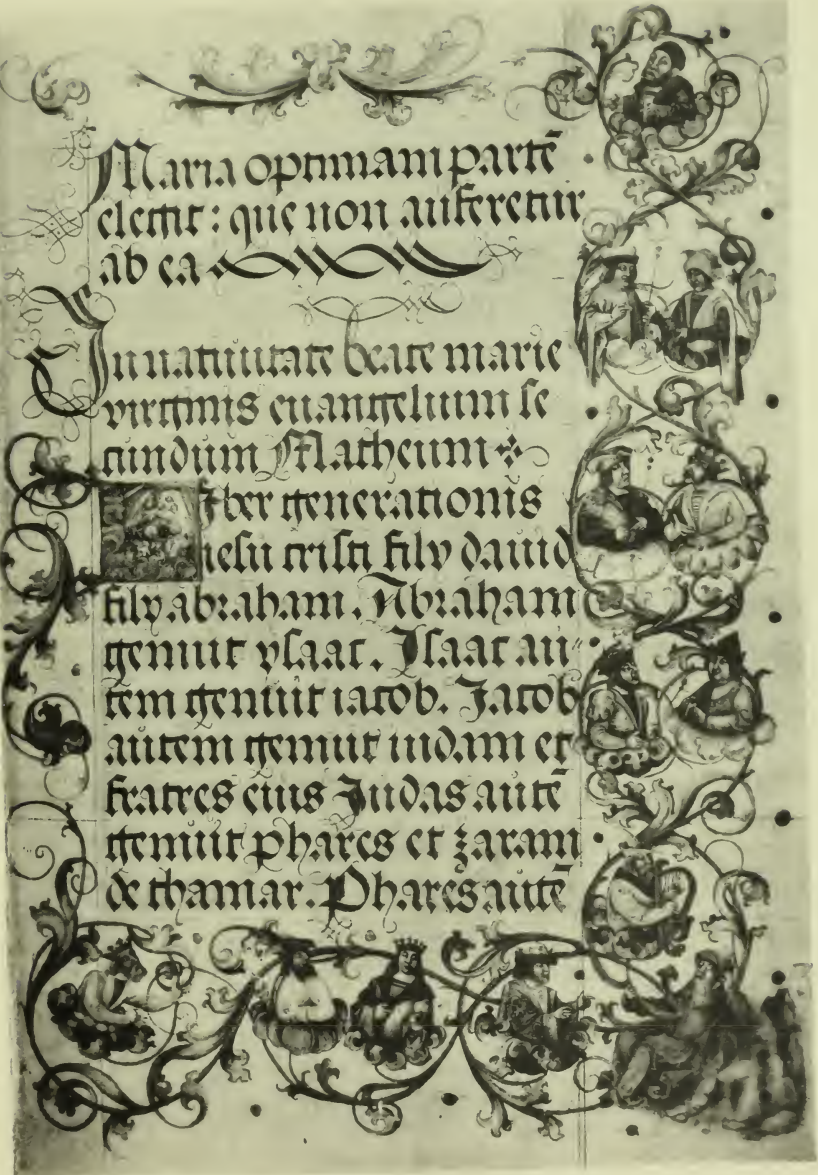 Maria optimam partē
elegit: que non auferetur
ab ea
In natiuitate beate marie
virginis euangelium se
cundum Matheum
Liber generationis
iesu cristi filij dauid
filij abraham. Abraham
genuit ysaac. Isaac au
tem genuit iacob. Jacob
autem genuit iudam et
fratres eius Judas autē
genuit phares et zaram
de thamar. Phares autē